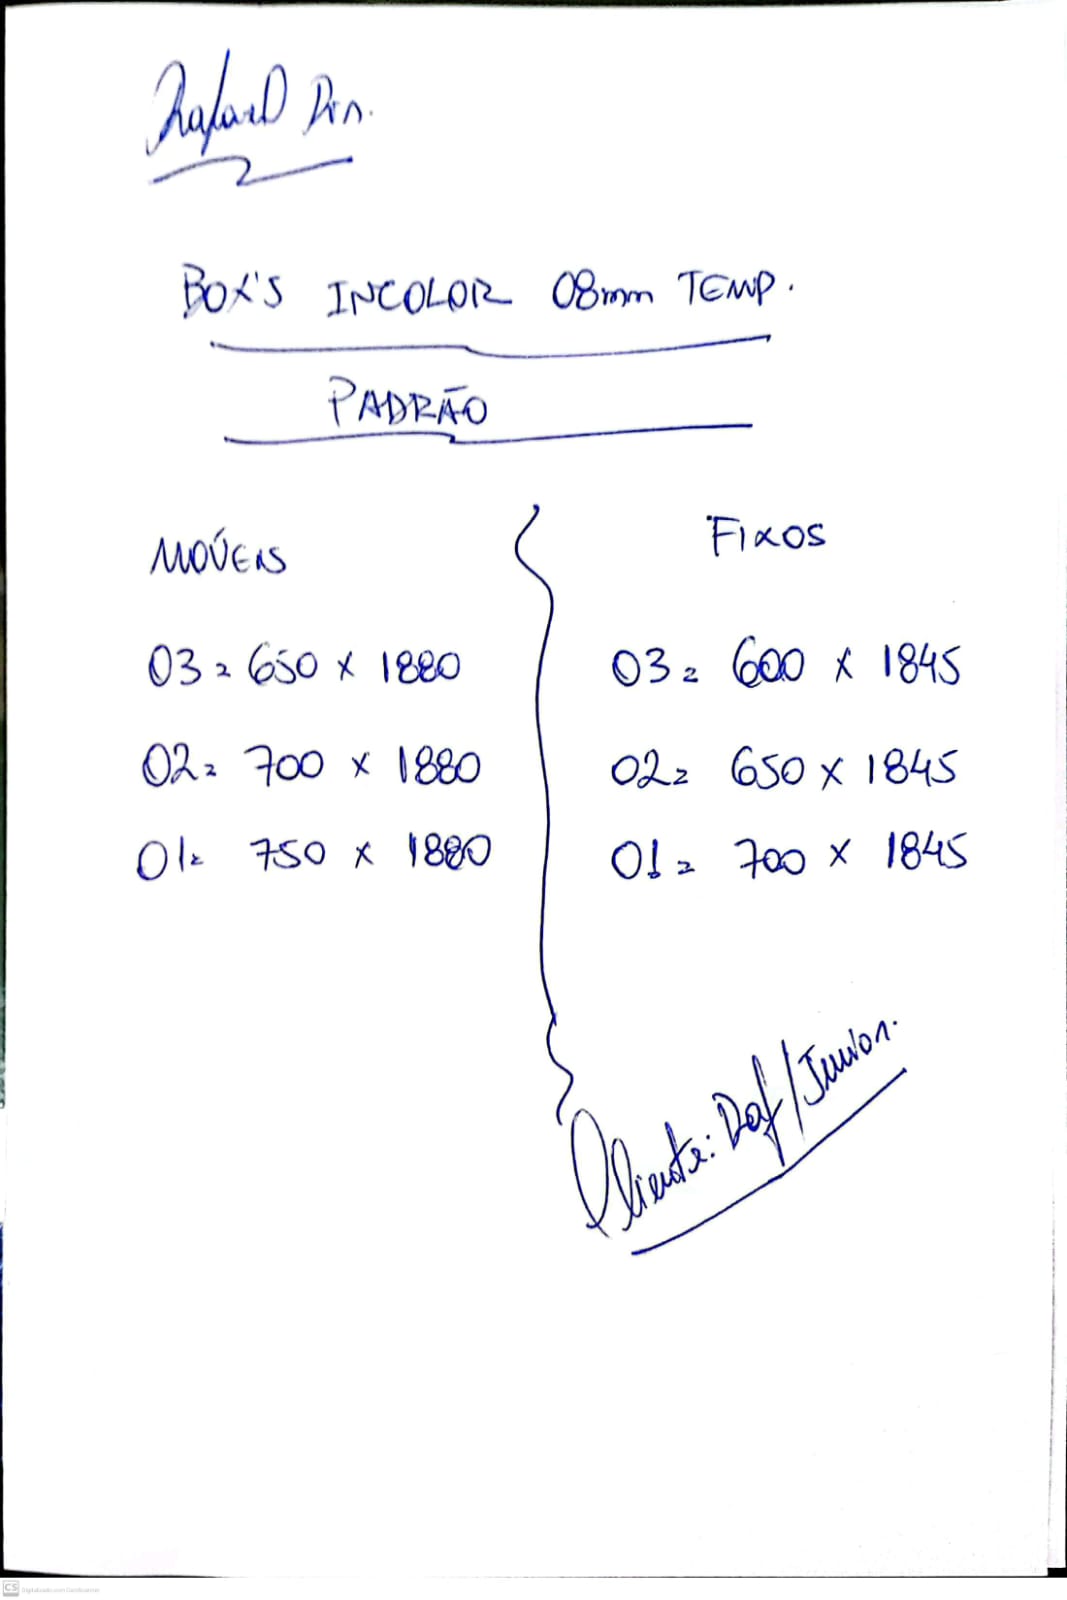 Rafael Din.
BOX'S INCOLOR 08mm TEMP.
PADRÃO
MÓVEIS
03 = 650 x 1880
02 = 700 x 1880
01 = 750 x 1880
FIXOS
03 = 600 x 1845
02 = 650 x 1845
01 = 700 x 1845
Cliente: Daf/Junior.
CS Digitalizado com CamScanner